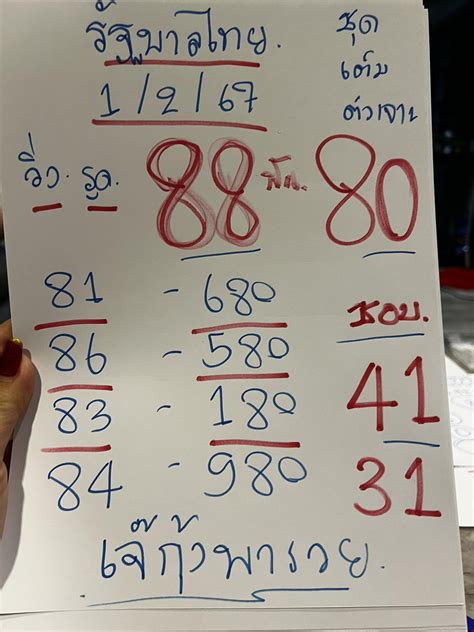 รัฐบาลไทย.
1/2/67
ชุด
เต็ม
ตัวเจาะ
วิ่ง. รูด. 88 ฟัน. 80
81 - 680
86 - 580
83 - 180
84 - 980
ชอบ.
41
31
เจ๊กุ้งพารวย.